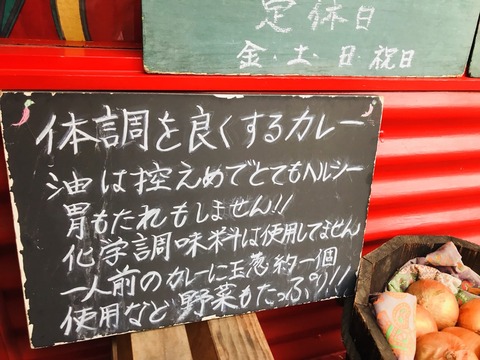 定休日
金・土・日・祝日
体調を良くするカレー
油は控えめでとてもヘルシー
胃もたれもしません!!
化学調味料は使用してません
一人前のカレーに玉葱約一個
使用など野菜もたっぷり!!